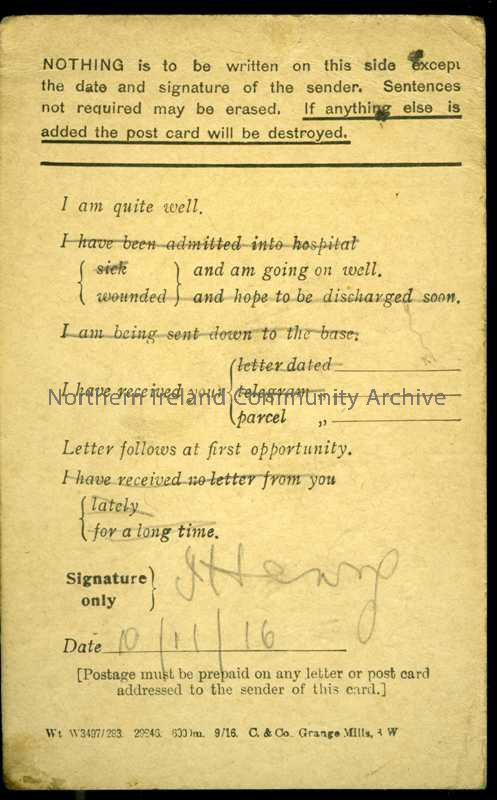 NOTHING is to be written on this side except
the date and signature of the sender. Sentences
not required may be erased. If anything else is
added the post card will be destroyed.
I am quite well.
I have been admitted into hospital
sick } and am going on well.
wounded } and hope to be discharged soon.
I am being sent down to the base.
letter dated
I have received your { telegram „
parcel „
Northern Ireland Community Archive
Letter follows at first opportunity.
I have received no letter from you
lately
for a long time.
Signature
only } Henry
Date 10/11/16
[Postage must be prepaid on any letter or post card
addressed to the sender of this card.]
Wt. W3497/293. 29246. 600m. 9/16. C. & Co., Grange Mills, S W